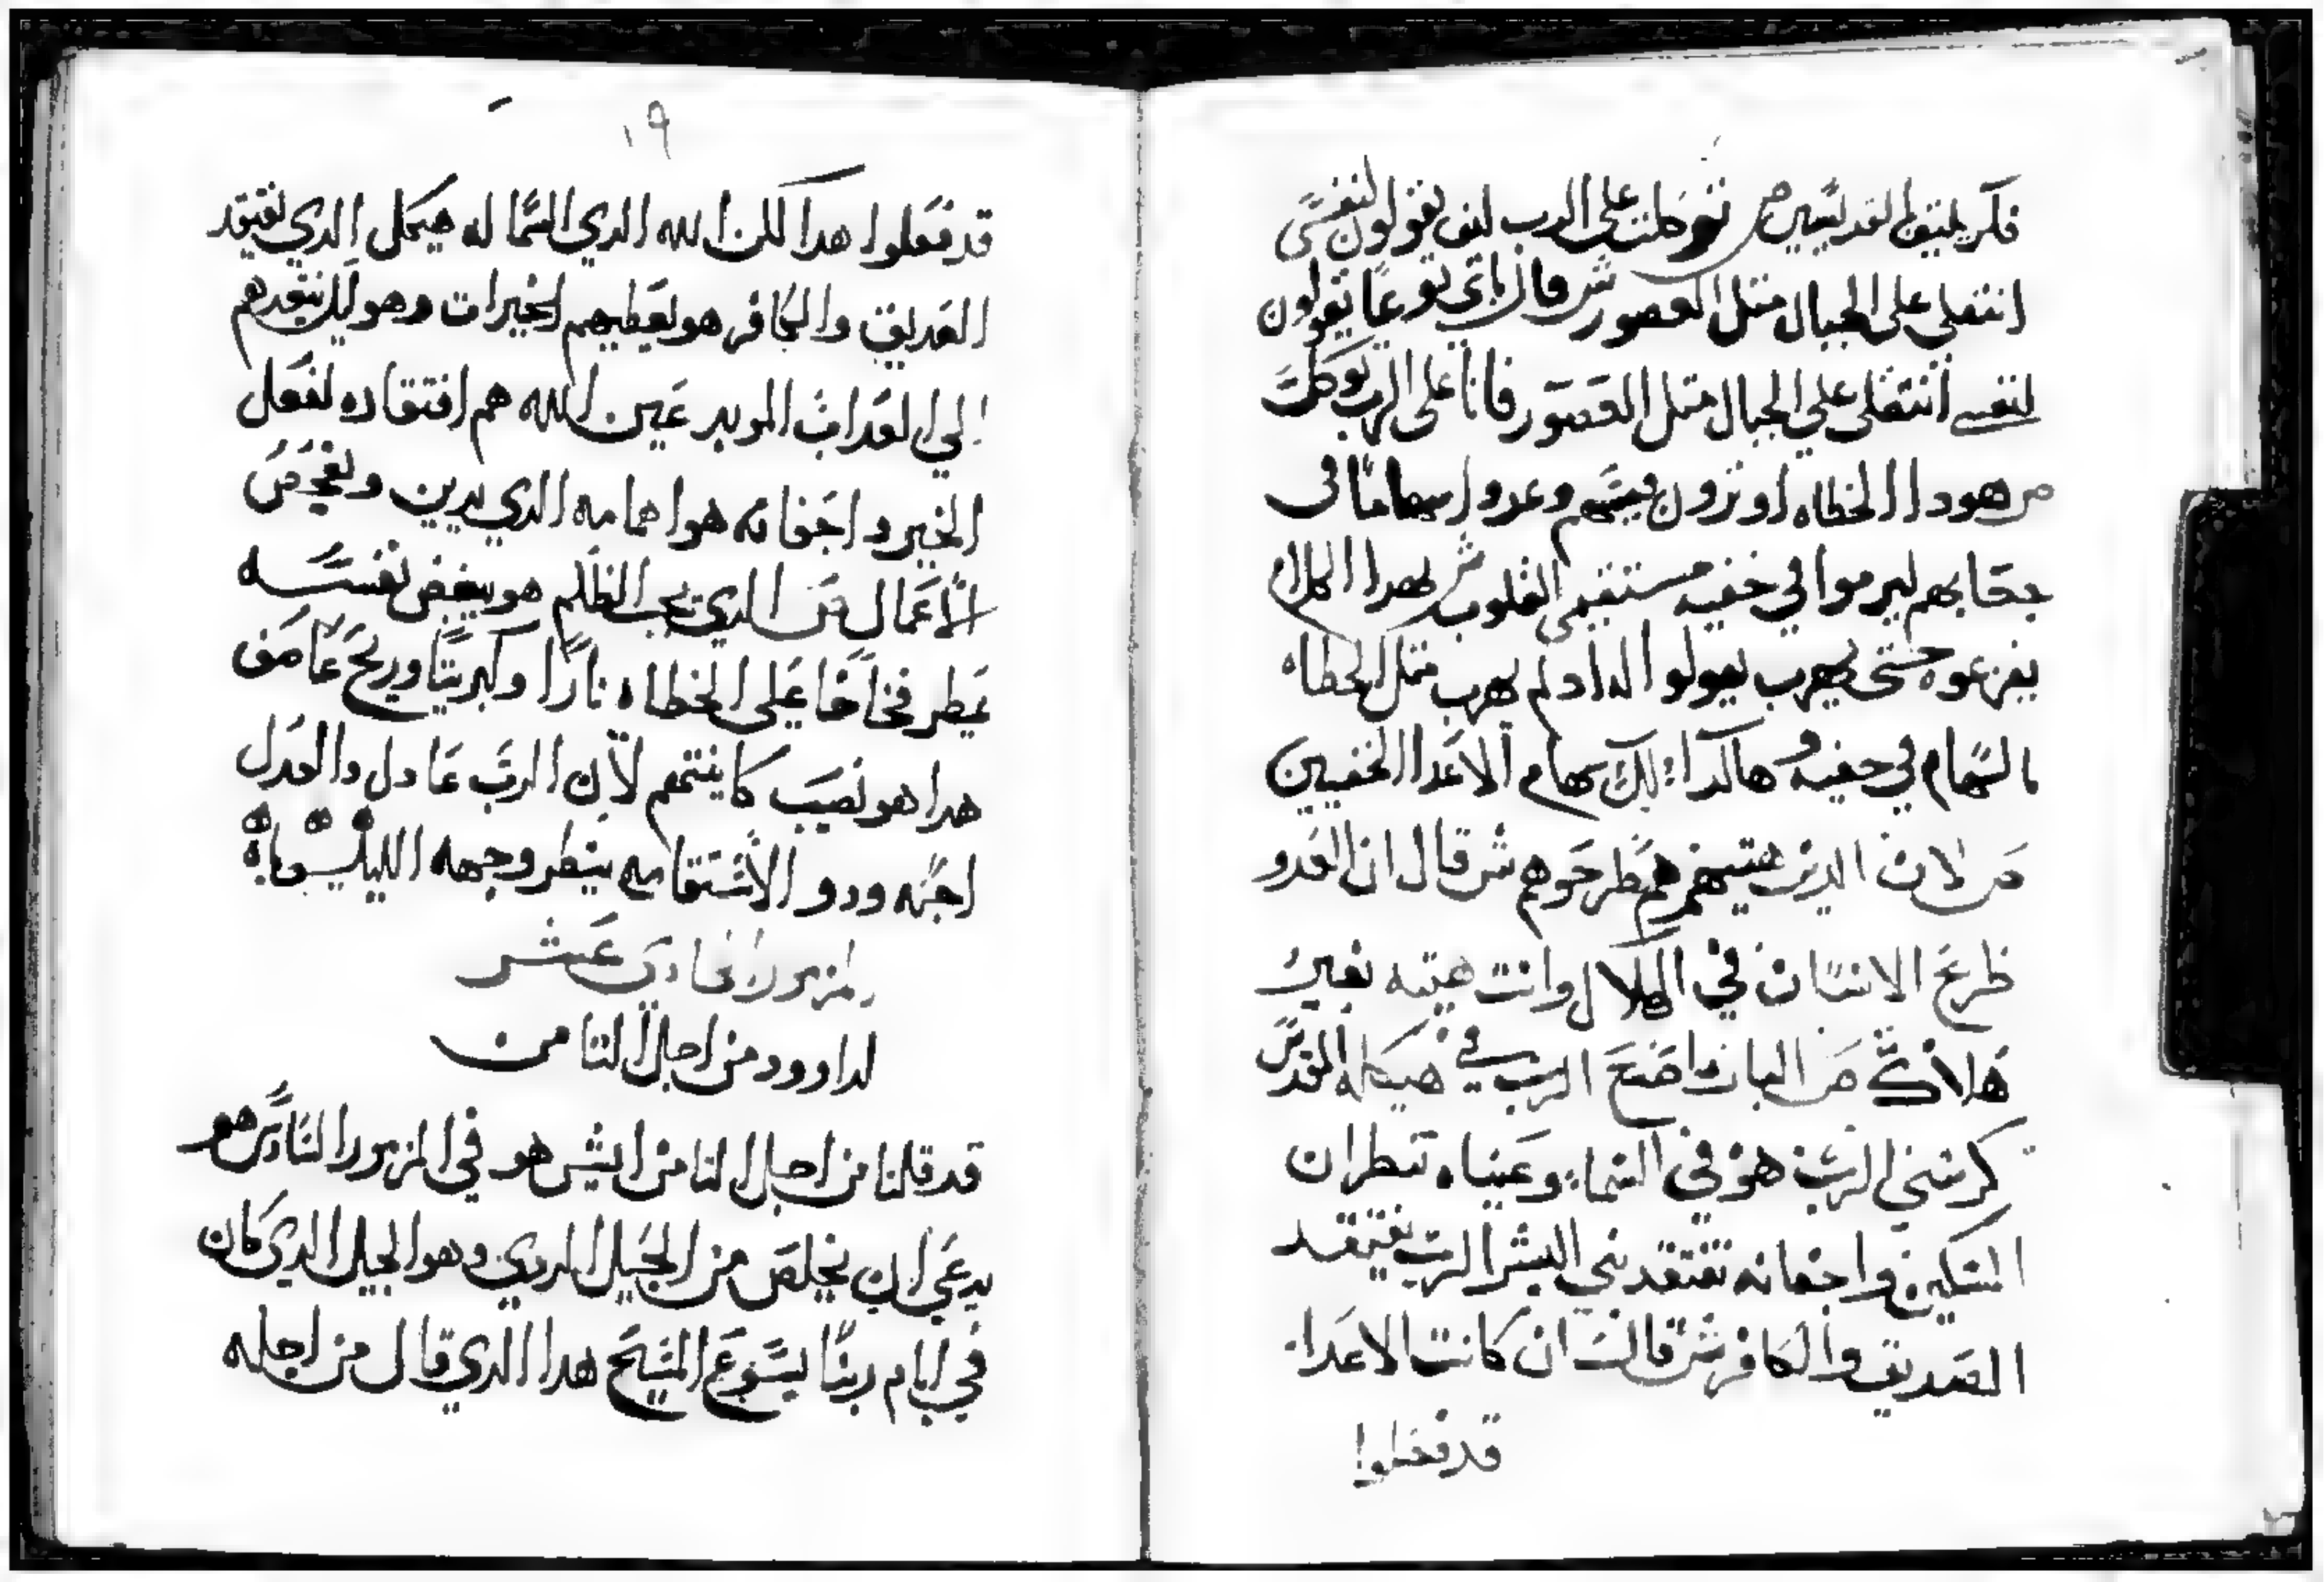 فكر يليق القديسين ص توكلت على الرب كيف تقولون لنفسي
انتقلي على الجبال متل العصفور شر قال باي نوعا تقولون
لنفسي انتقلي علي الجبال متل العصفور فانا على الرب توكلت
ص هودا الخطاه اوترون قيسهم وعدوا سهاما في
جعابهم ليرموا في خفيه مستقيمى القلوب شر بهدا الكلام
يفزعوه حتى يهرب يقولوا الدا دلم يهرب متل الخطاه
السهام في خفيه وهاكدا اوليك سهام الاعدا الخفيين
ص لان الدين هيتهم هم طرحوهم شر قال ان العدو
طرح الانسان في الهلاك وانت هيته بغير
هلاك ص البار مادا صنع الرب في هيكله القدس
كرسي الرب هو في السماء وعيناه تنظران
المسكين واجفانه تفتقد بني البشر الرب يفتقد
الصديق والكافر شر قال ان كانت الاعدا
قد فعلوا
١٩
قد فعلوا هدا لكن الله الدي السما له هيكل الدي يفتقد
الصديق والكافر هو يعطيهم الخيرات وهو ليلا ينقدهم
الي العداب الموبد عين الله هم افتقاده لفعل
الخير واجفانه هو اهامه الدي يدين ويفحص
الاعمال ص الدي يحب الظلم هو يبغض نفسه
يمطر فخاخا على الخطاه نارا وكبريتا وريح عاصف
هدا هو نصيب كاسهم لان الرب عادل والعدل
احبه ودو الاستقامه ينظر وجهه الليلويا
المزمور الحادي عشر
لداوود من اجل التامن
قد قلنا من اجل التامن ايش هو في المزمور السادس هو
يدعي ان يخلص من الجيل الردي وهو الجيل الدي كان
في ايام ربنا يسوع المسيح هدا الدي قال من اجله